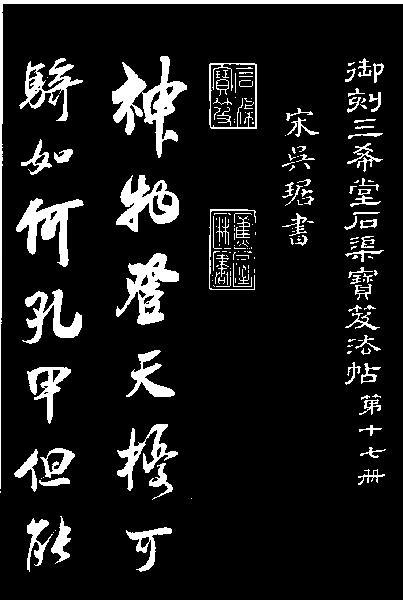 御刻三希堂石渠寶笈法帖第十七册
宋吳琚書
石渠
寶笈
神物登天擾可
騎如何孔甲但能